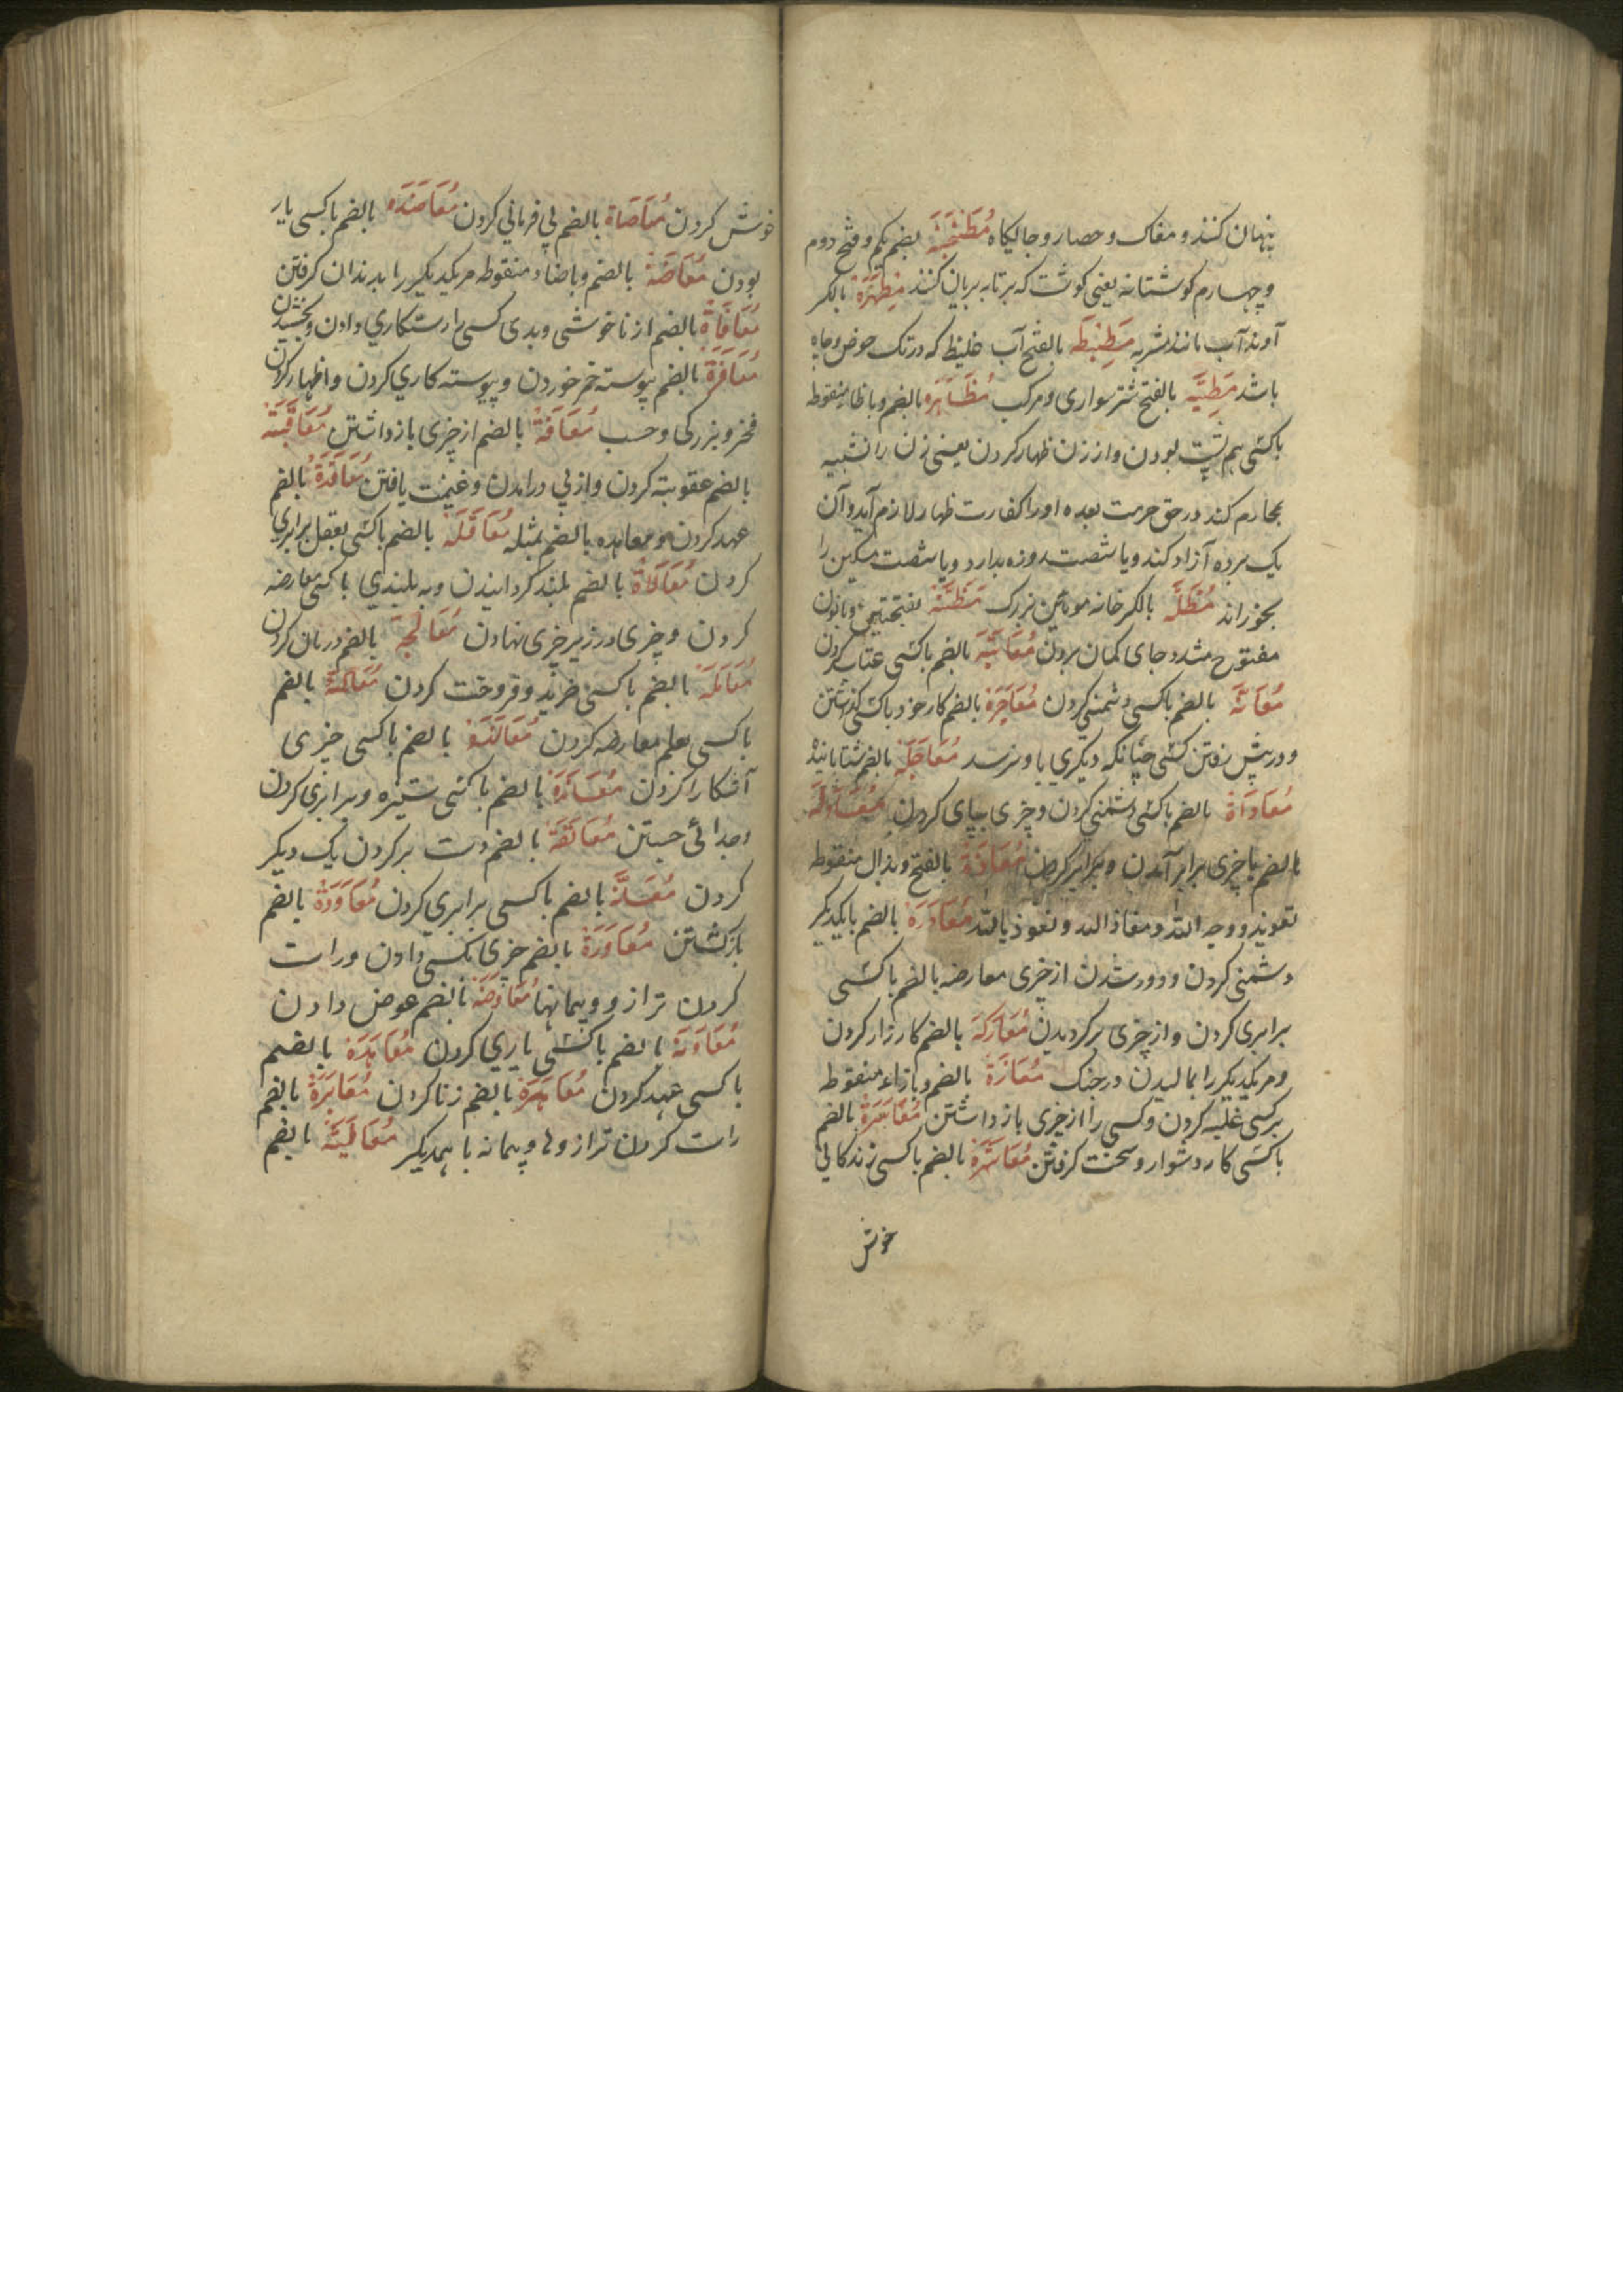 پنهان کنند و مغاک و حصار و جایگاه مُطَنْجَنَة بضم یکم و فتح دوم
و چهارم گوشتابه یعنی گوشت که برتابه بریان کنند مِطْهَرَة بالکسر
آوند آب مانند مشربه مَطِیطَة بالفتح آب غلیظ که در تک حوض و چاه
باشد مَطِیَّة بالفتح شتر سواری و مرکب مُظَاهَرَة بالضم و با ظاء منقوطه
با کسی هم پشت بودن و از زن ظهار کردن یعنی زن را تشبیه
بمحارم کند در حق حرمت بعده او را کفارت ظهار لازم آید و آن
یک برده آزاد کند و یا شصت روزه بدارد و یا شصت مسکین را
بخوراند مِظَلَّة بالکسر خانه موئین بزرگ مَظَنَّة بفتحتین و بانون
مفتوح مشدد جای گمان بردن مُعَاتَبَة بالضم با کسی عتاب کردن
مُعَانَّة بالضم با کسی دشمنی کردن مُعَاجَزَة بالضم کار خود با کسی گذاشتن
و در پیش رفتن کسی چنانکه دیگری باو نرسد مُعَاجَلَة بالضم شتابانیدن
مُعَادَاة بالضم با کسی دشمنی کردن و چیزی پیاپی کردن مُعَادَلَة
بالضم با چیزی برابر آمدن و برابر کردن مُعَاذَة بالفتح و بذال منقوطه
تعویذ و وجه الله و معاذ الله و نعوذ بالله مُعَادَرَة بالضم با یکدیگر
دشمنی کردن و دور شدن از چیزی معارضه بالضم با کسی
برابری کردن و از چیزی برگردیدن مُعَارَکَة بالضم کارزار کردن
و مر یکدیگر را بمالیدن در جنگ مُعَازَّة بالضم و بازاء منقوطه
بر کسی غلبه کردن و کسی را از چیزی باز داشتن مُعَاسَرَة بالضم
با کسی کار دشوار و سخت گرفتن مُعَاشَرَة بالضم با کسی زندگانی
خوش
خوش کردن مُعَاصَاة بالضم بی فرمانی کردن مُعَاضَدَة بالضم با کسی یار
بودن مُعَاضَّة بالضم و باضاد منقوطه مر یکدیگر را بدندان گرفتن
مُعَافَاة بالضم از ناخوشی و بدی کسی را رستگاری دادن و بخشیدن
مُعَاقَرَة بالضم پیوسته خمر خوردن و پیوسته کاری کردن و اظهار کردن
فخر و بزرگی و حسب مُعَاقَة بالضم از چیزی بازداشتن مُعَاقَبَة
بالضم عقوبته کردن و از پی درآمدن و غنیمت یافتن مُعَاقَدَة بالضم
عهد کردن و معاهده بالضم بمثله مُعَاقَلَة بالضم با کسی بعقل برابری
کردن مُعَالَاة بالضم بلند گردانیدن و به بلندی با کسی معارضه
کردن و چیزی در زیر چیزی نهادن مُعَالَجَة بالضم درمان کردن
مُعَامَلَة بالضم با کسی خرید و فروخت کردن مُعَالَمَة بالضم
با کسی بعلم معارضه کردن مُعَالَنَة بالضم با کسی چیزی
آشکارا کردن مُعَانَدَة بالضم با کسی ستیزه و برابری کردن
و جدائی جستن مُعَانَقَة بالضم دست بر گردن یک دیگر
کردن مُعَادَّة بالضم با کسی برابری کردن مُعَاوَدَة بالضم
بازگشتن مُعَاوَرَة بالضم چیزی بکسی دادن و راست
کردن ترازو و پیمانها مُعَاوَضَة بالضم عوض دادن
مُعَاوَنَة بالضم با کسی یاری کردن مُعَاهَدَة بالضم
با کسی عهد کردن مُعَاهَرَة بالضم زنا کردن مُعَایَرَة بالضم
راست کردن ترازوها و پیمانه با همدیگر مُعَایَنَة بالضم